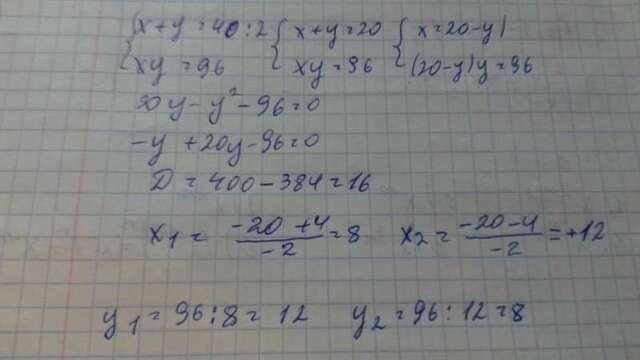 {x+y=40:2 {x+y=20 {x=20-y)
{xy=96 {xy=96 {(20-y)y=96
20y-y²-96=0
-y+20y-96=0
D=400-384=16
x₁= (-20+4)/(-2) =8 x₂= (-20-4)/(-2) =+12
y₁=96:8=12 y₂=96:12=8